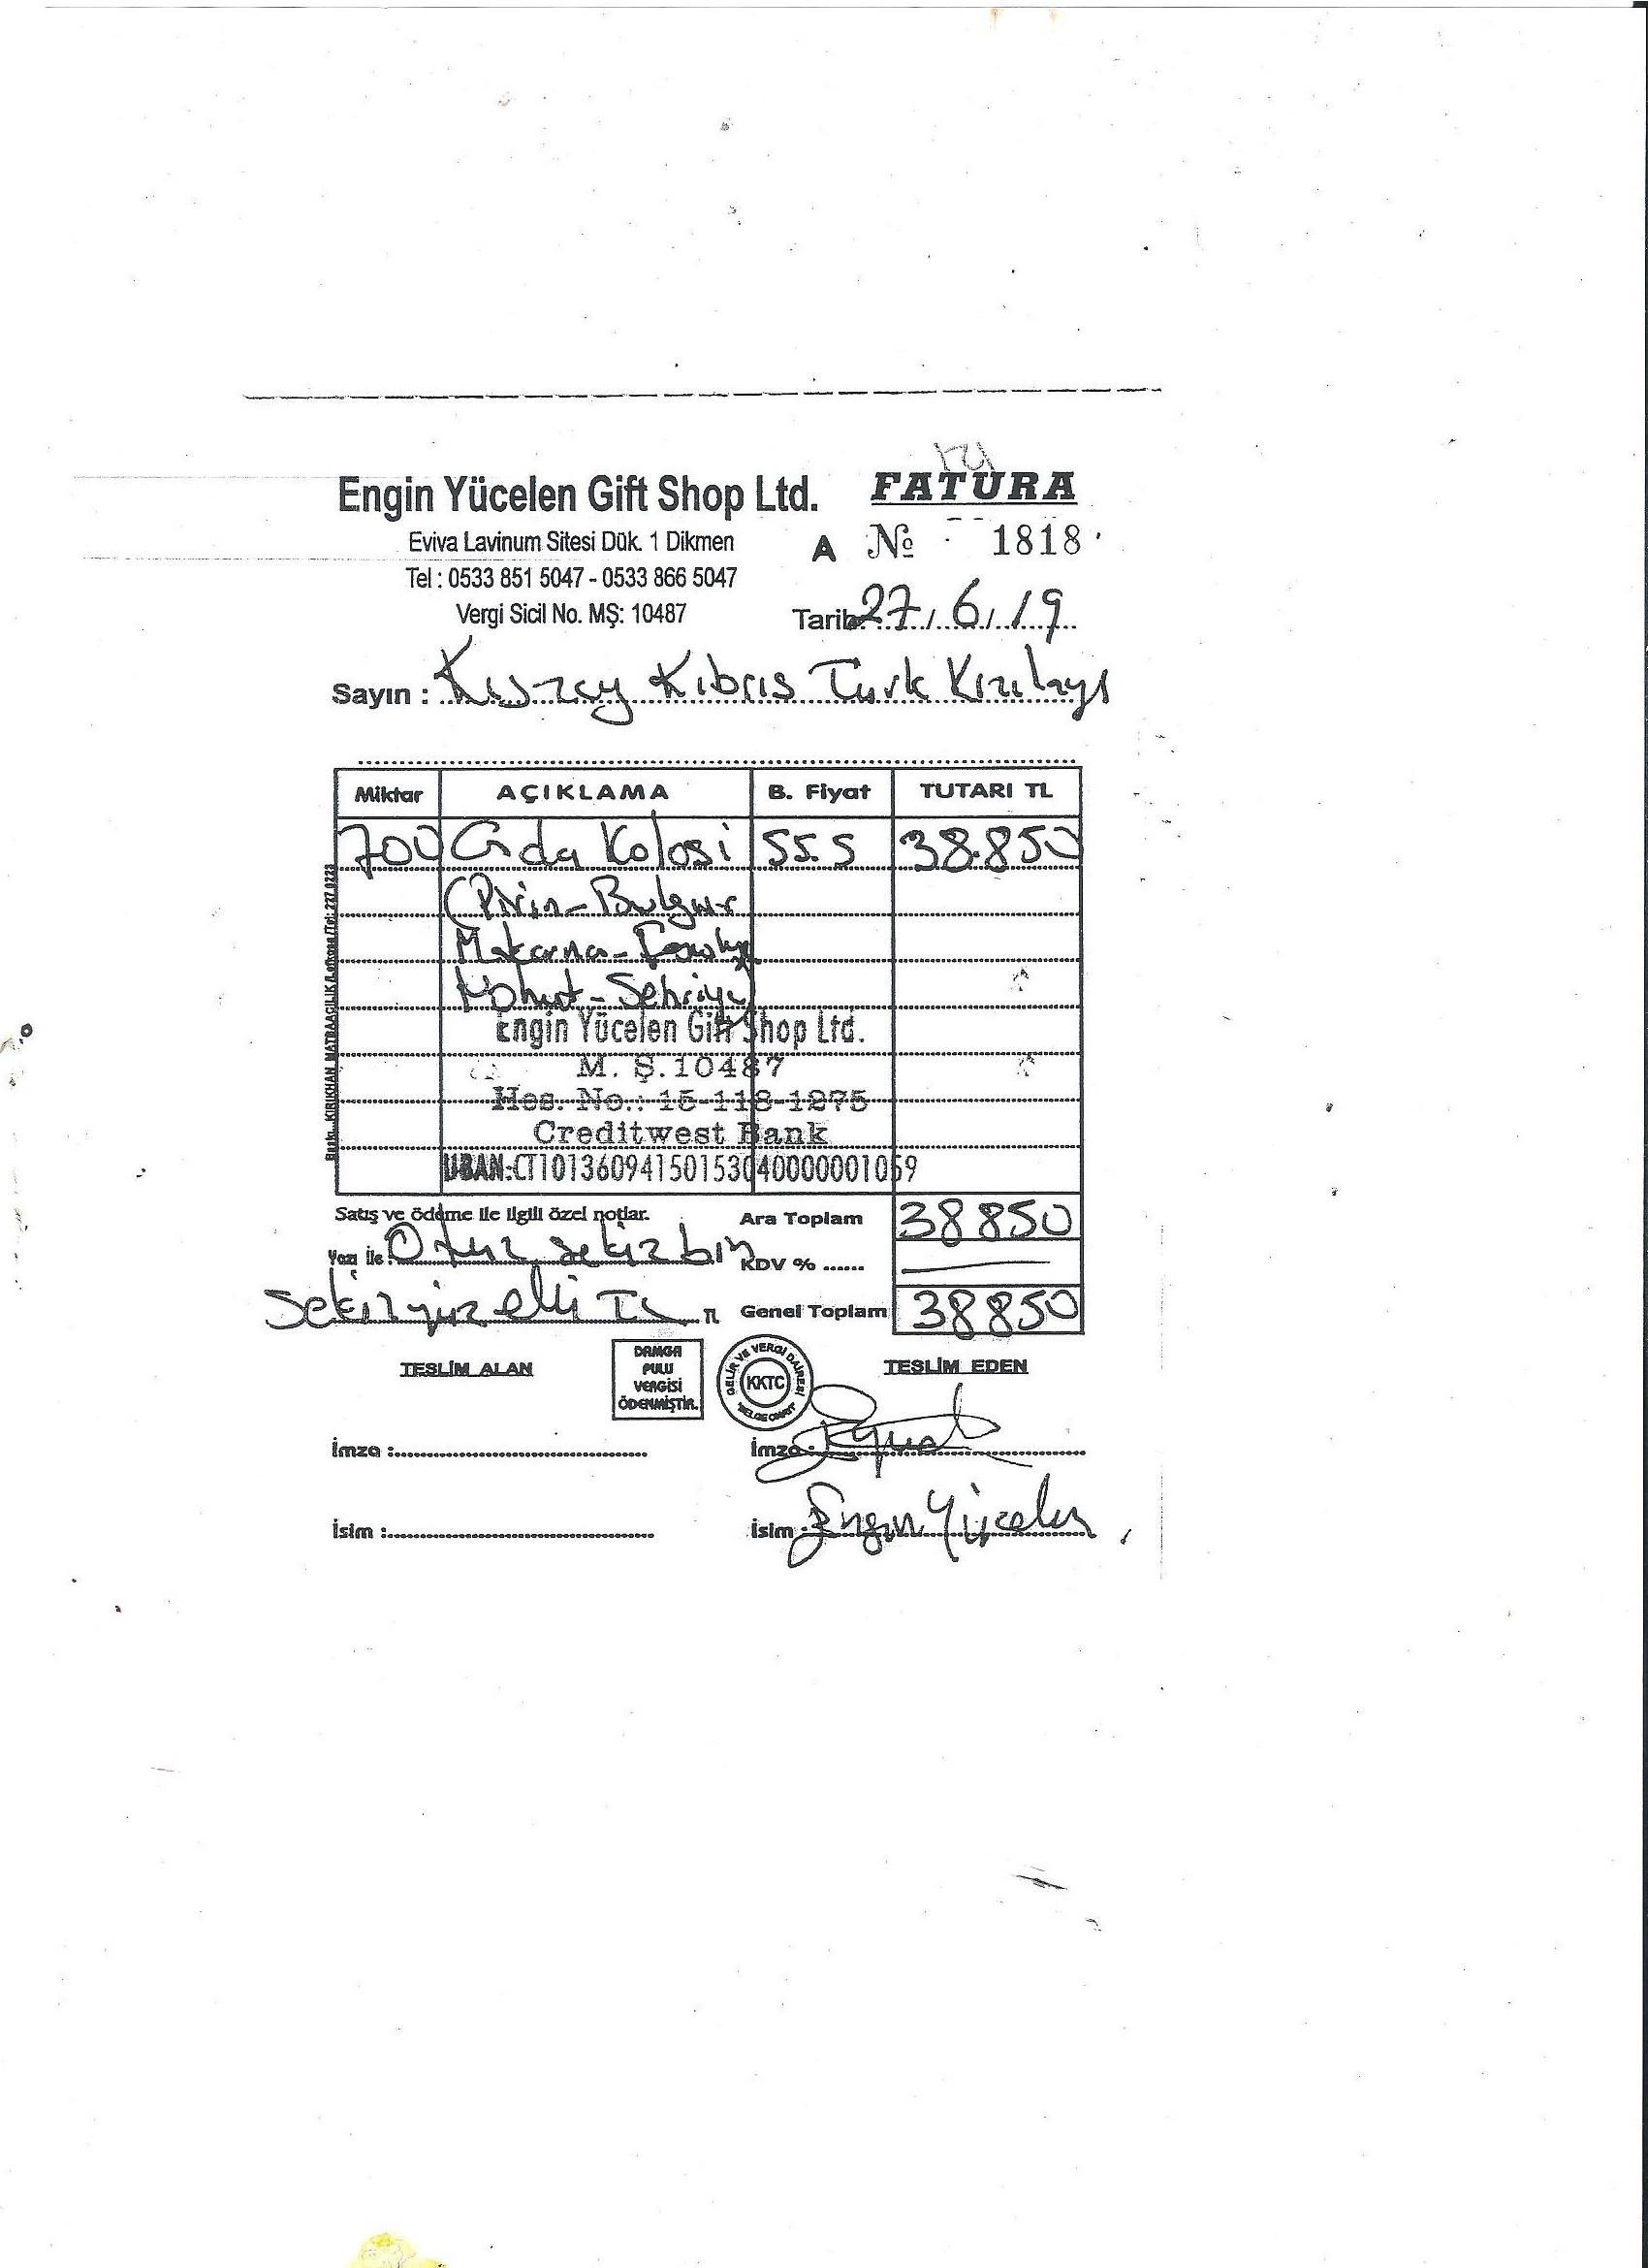 Engin Yücelen Gift Shop Ltd. FATURA
Eviva Lavinum Sitesi Dük. 1 Dikmen A № 1818
Tel : 0533 851 5047 - 0533 866 5047
Vergi Sicil No. MŞ: 10487 Tarih: 27/6/19
Sayın : Kıbrıs Türk Kızılayı
Miktar AÇIKLAMA B. Fiyat TUTARI TL
700 Gıda Kolosi 55.5 38.850
(Pirin - Bulgur
Makarna -
Nohut - Sehriye
Engin Yücelen Gift Shop Ltd.
M. Ş. 10487
Hes. No.: 15-118-1275
Creditwest Bank
UBAN:CT10136094150153040000001059
KIRIKHAN MATBAACILIK /Tel: 227 0223
Satış ve ödeme ile ilgili özel notlar. Ara Toplam 38850
Yazı ile: Otuz sekiz bin KDV % ......
Sekizyüz elli TL TL Genel Toplam 38850
TESLİM ALAN
DAMGA
PULU
VERGİSİ
ÖDENMİŞTİR.
GELİR VE VERGİ DAİRESİ
KKTC
TESLİM EDEN
İmza : İmza :
İsim : İsim : Engin Yücelen